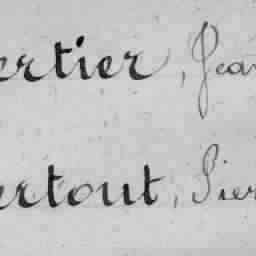 ertier, Jea
ertout, Pier